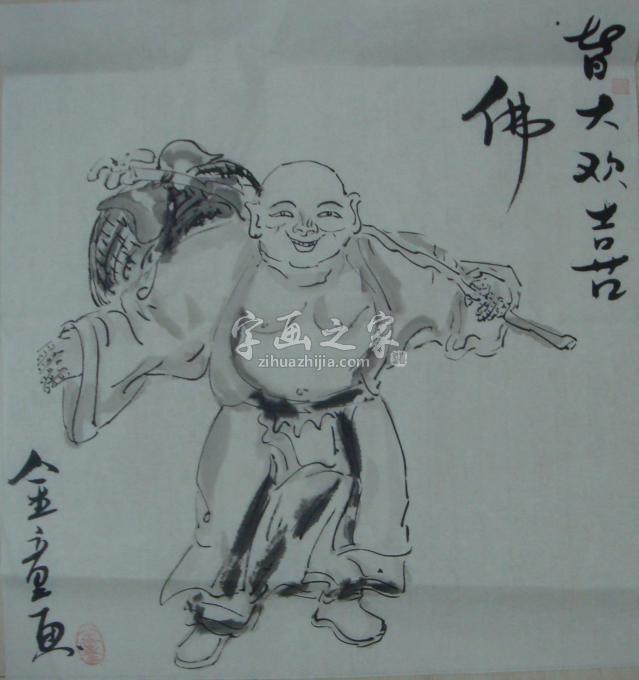 皆大欢喜
佛
字画之家
zihuazhijia.com
金童画